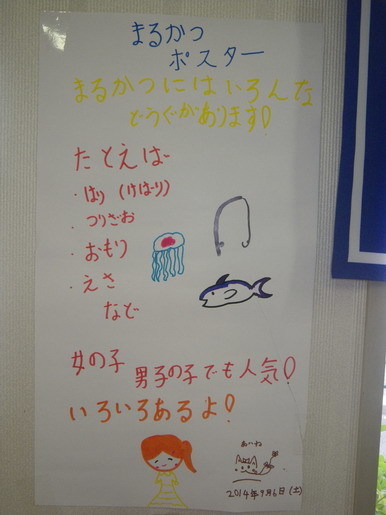 まるかつ
ポスター
まるかつにはいろんな
どうぐがあります!
たとえば
・はり (けばり)
・つりざお
・おもり
・えさ
など
女の子
男子の子でも人気!
いろいろあるよ!
あいね
2014年9月6日(土)